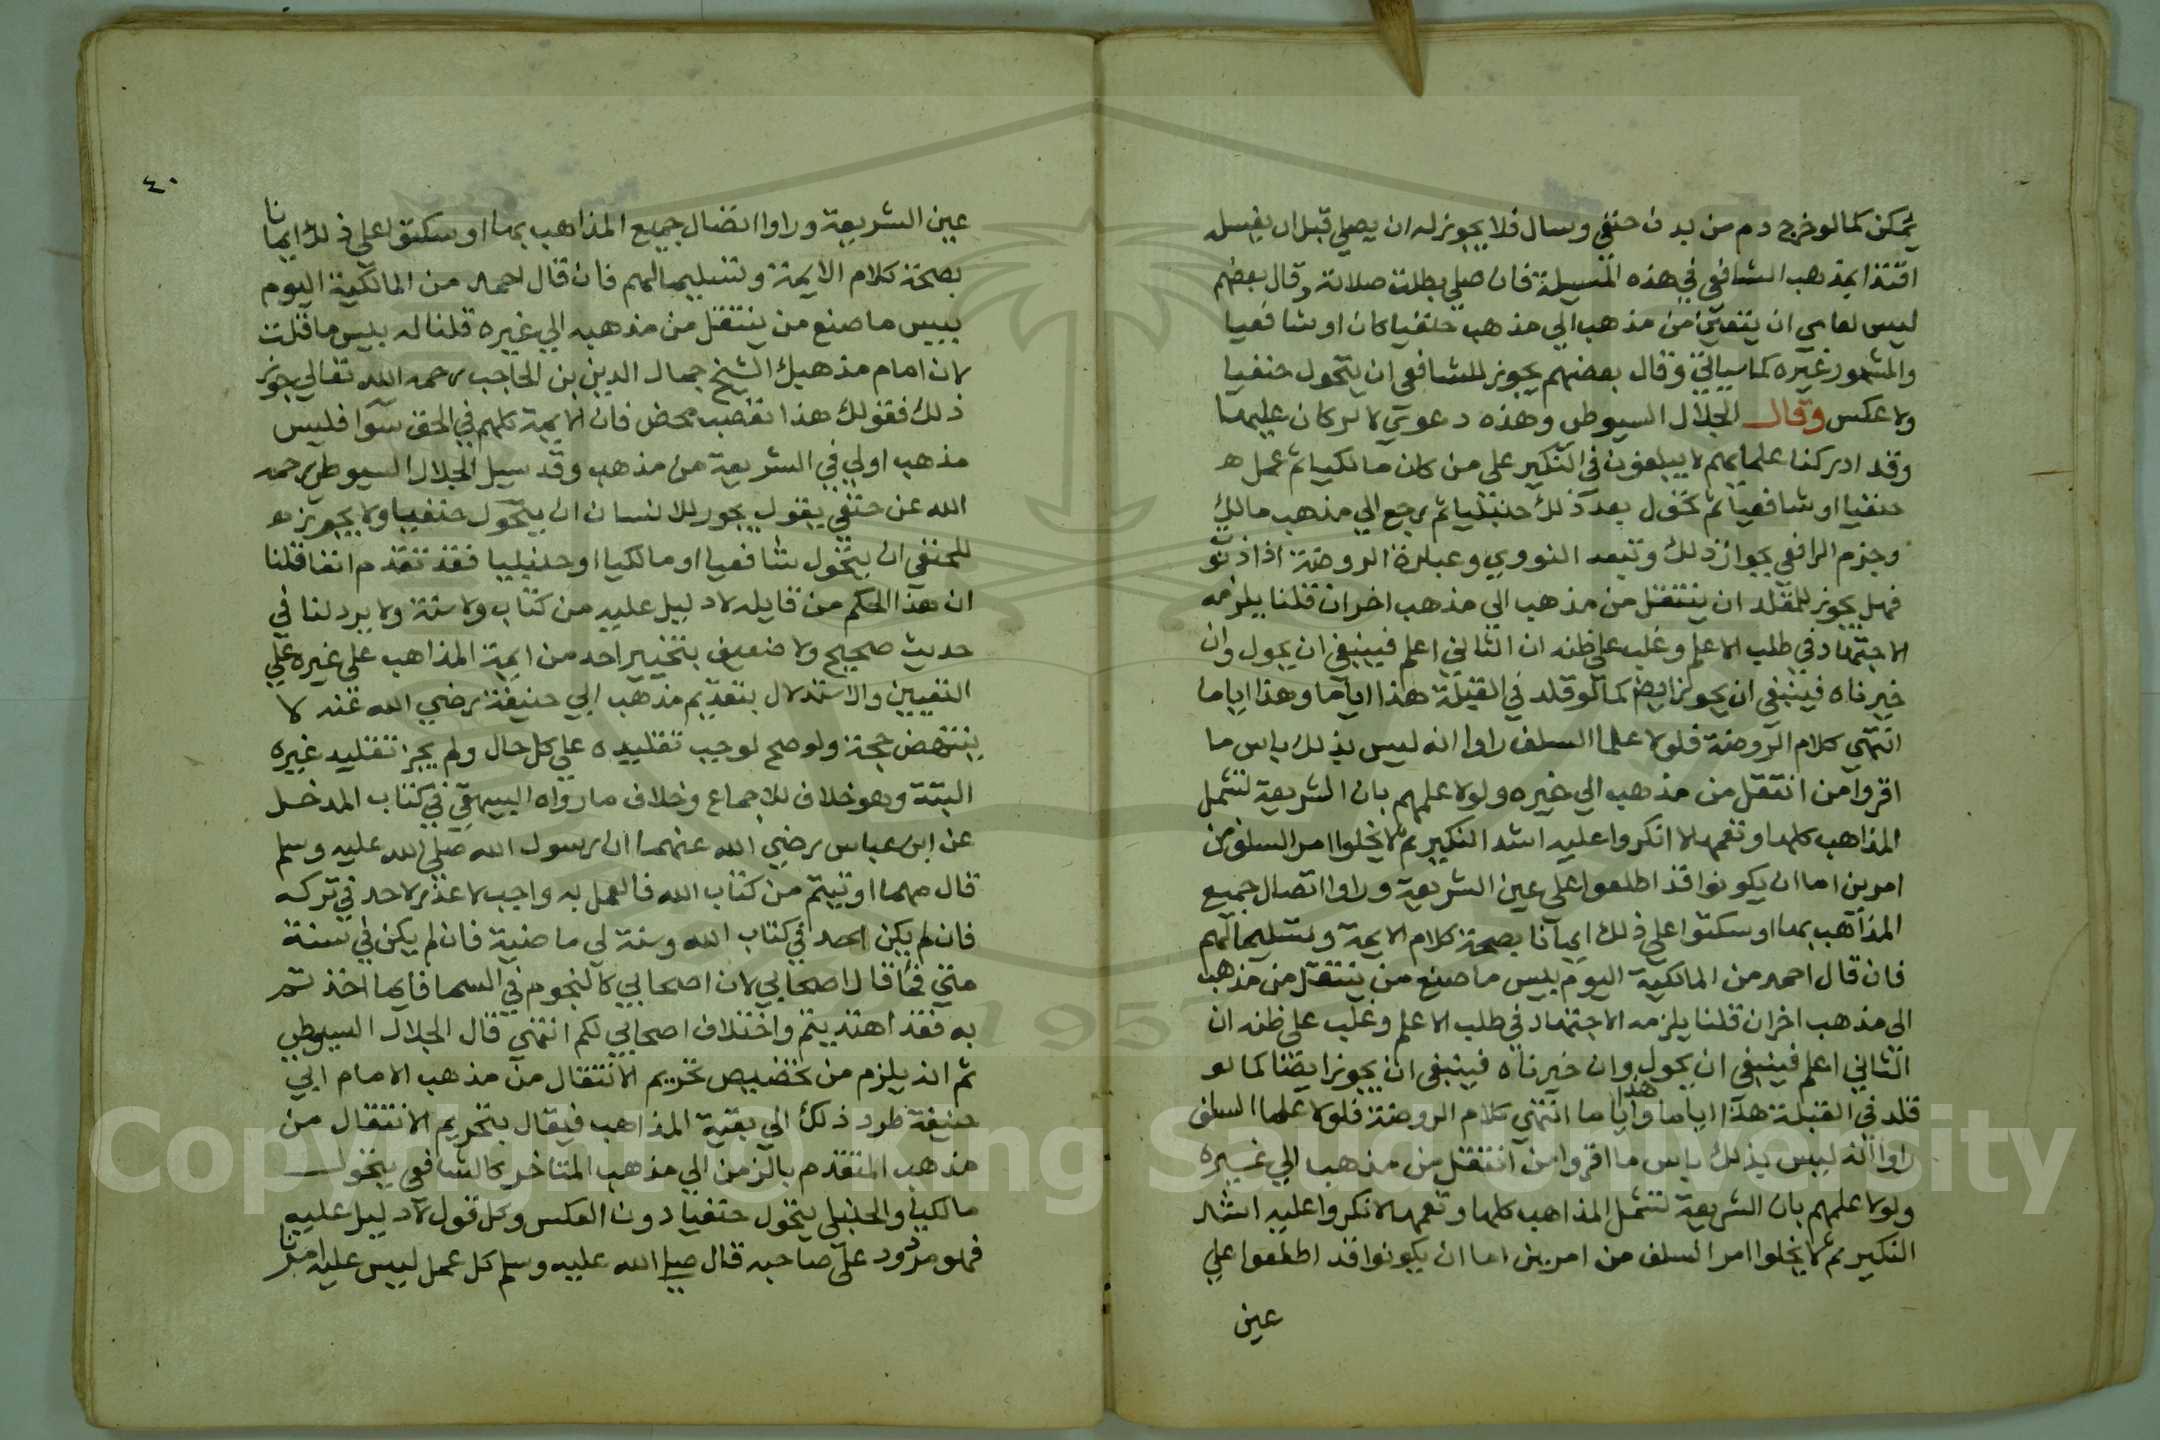 يمكن كما لو خرج دم من بدن حنفي وسال فلا يجوز له ان يصلي قبل ان يغسله
اقتدا بمذهب الشافعي في هذه المسيلة فان صلي بطلت صلاته وقال بعضهم
ليس لعامي ان يتعين من مذهب الي مذهب حنفيا كان او شافعيا
والمشهور غيره كما سياتي وقال بعضهم يجوز للشافعي ان يتحول حنفيا
ولا عكس وقال الجلال السيوطي وهذه دعوي لا بركان عليها
وقد ادركنا علمايهم لا يبلغون في النكير على من كان مالكيا ثم عمل
حنفيا او شافعيا ثم تحول بعد ذلك حنبليا ثم رجع الي مذهب مالك
وجزم الرافعي بجواز ذلك وتبعه النووي وعبارة الروضة اذا دونت
فهل يجوز للمقلد ان ينتقل من مذهب الي مذهب اخر ان قلنا يلزمه
الاجتهاد في طلب الاعلم وغلب على ظنه ان الثاني اعلم فينبغي ان يجول وان
خيرناه فينبغي ان يجوز ايضا كما لو قلد في القبلة هذا اياما وهذا اياما
انتهي كلام الروضة فلولا علما السلف راوا انه ليس بذلك باس ما
اقروا من انتقل من مذهب الي غيره ولولا علمهم بان الشريعة لتشمل
المذاهب كلها وتعمها لانكروا عليه اشد النكير ثم لا يخلوا امر السلف من
امرين اما ان يكونوا قد اطلعوا على عين الشريعة وراوا اتصال جميع
المذاهب بها او سكتوا على ذلك ايمانا بصحة كلام الايمة وتسليما لهم
فان قال احمد من المالكية اليوم بليس ما صنع من ينتقل من مذهب
الي مذهب اخر ان قلنا يلزمه الاجتهاد في طلب الاعلم وغلب على ظنه ان
الثاني اعلم فينبغي ان يجول وان خيرناه فينبغي ان يجوز ايضا كما لو
قلد في القبلة هذا اياما وهذا اياما انتهي كلام الروضة فلولا علما السلف
راوا انه ليس بذلك باس ما اقروا من انتقل من مذهب الي غيره
ولولا علمهم بان الشريعة لتشمل المذاهب كلها وتعمها لانكروا عليه اشد
النكير ثم لا يخلوا امر السلف من امرين اما ان يكونوا قد اطلعوا علي
عين
٤٠
عين الشريعة وراوا اتصال جميع المذاهب بها او سكتوا علي ذلك ايمانا
بصحة كلام الايمة وتسليما لهم فان قال احمد من المالكية اليوم
بيبس ما صنع من ينتقل من مذهبه الي غيره قلنا له بليس ما قلت
لان امام مذهبك الشيخ جمال الدين بن الحاجب رحمه الله تعالي جوز
ذلك فقولك هذا تعصب محض فان الايمة كلهم في الحق سوا فليس
مذهب اولي في الشريعة من مذهب وقد سيل الجلال السيوطي رحمه
الله عن حنفي يقول يجوز للانسان ان يتحول حنفيا ولا يجوز
للحنفي ان يتحول شافعيا او مالكيا او حنبليا فقد تقدم انفا قلنا
ان هذا الحكم من قايله لا دليل عليه من كتاب ولا سنة ولا يرد لنا في
حديث صحيح ولا ضعيف بتخيير احد من ايمة المذاهب على غيره علي
التعيين والاستدلال بتقديم مذهب ابي حنيفة رضي الله عنه لا
ينتهض حجة ولو صح لوجب تقليده علي كل حال ولم يجز تقليد غيره
البتة وهو خلاف للاجماع وخلاف ما رواه البيهقي في كتاب المدخل
عن ابن عباس رضي الله عنهما ان رسول الله صلي الله عليه وسلم
قال مهما اوتيتم من كتاب الله فالعمل به واجب لا عذر لاحد في تركه
فان لم يكن احد في كتاب الله وسنة لي ماضية فان لم يكن في سنة
مني فما قال اصحابي لان اصحابي كالنجوم في السما فايها اخذتم
به فقد اهتديتم واختلاف اصحابي لكم انتهي قال الجلال السيوطي
ثم انه يلزم من تخصيص تحريم الانتقال من مذهب الامام ابي
حنيفة طرد ذلك الي بقية المذاهب فيقال بتحريم الانتقال من
مذهب المتقدم بالزمن الي مذهب المتاخر كالشافعي يتحول
مالكيا والحنبلي يتحول حنفيا دون العكس وكل قول لا دليل عليه
فهو مردود علي صاحبه قال صلي الله عليه وسلم كل عمل ليس عليه امرنا
Copyright © King Saud University
1957